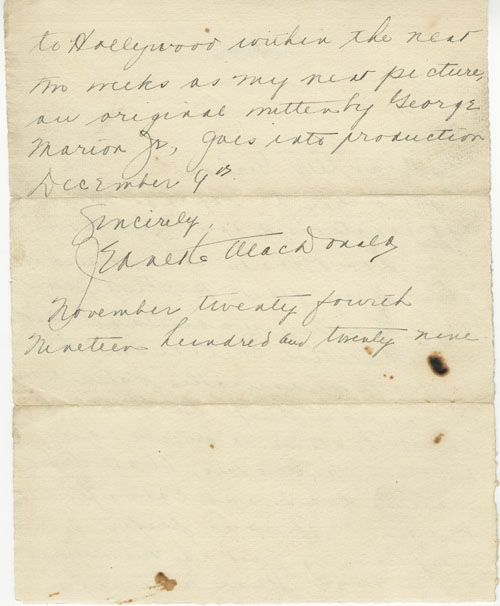 to Hollywood within the next
two weeks as my next picture,
an original written by George
Marion Jr, goes into production
December 9th
Sincerely,
Jeanette MacDonald
November twenty fourth
Nineteen hundred and twenty nine